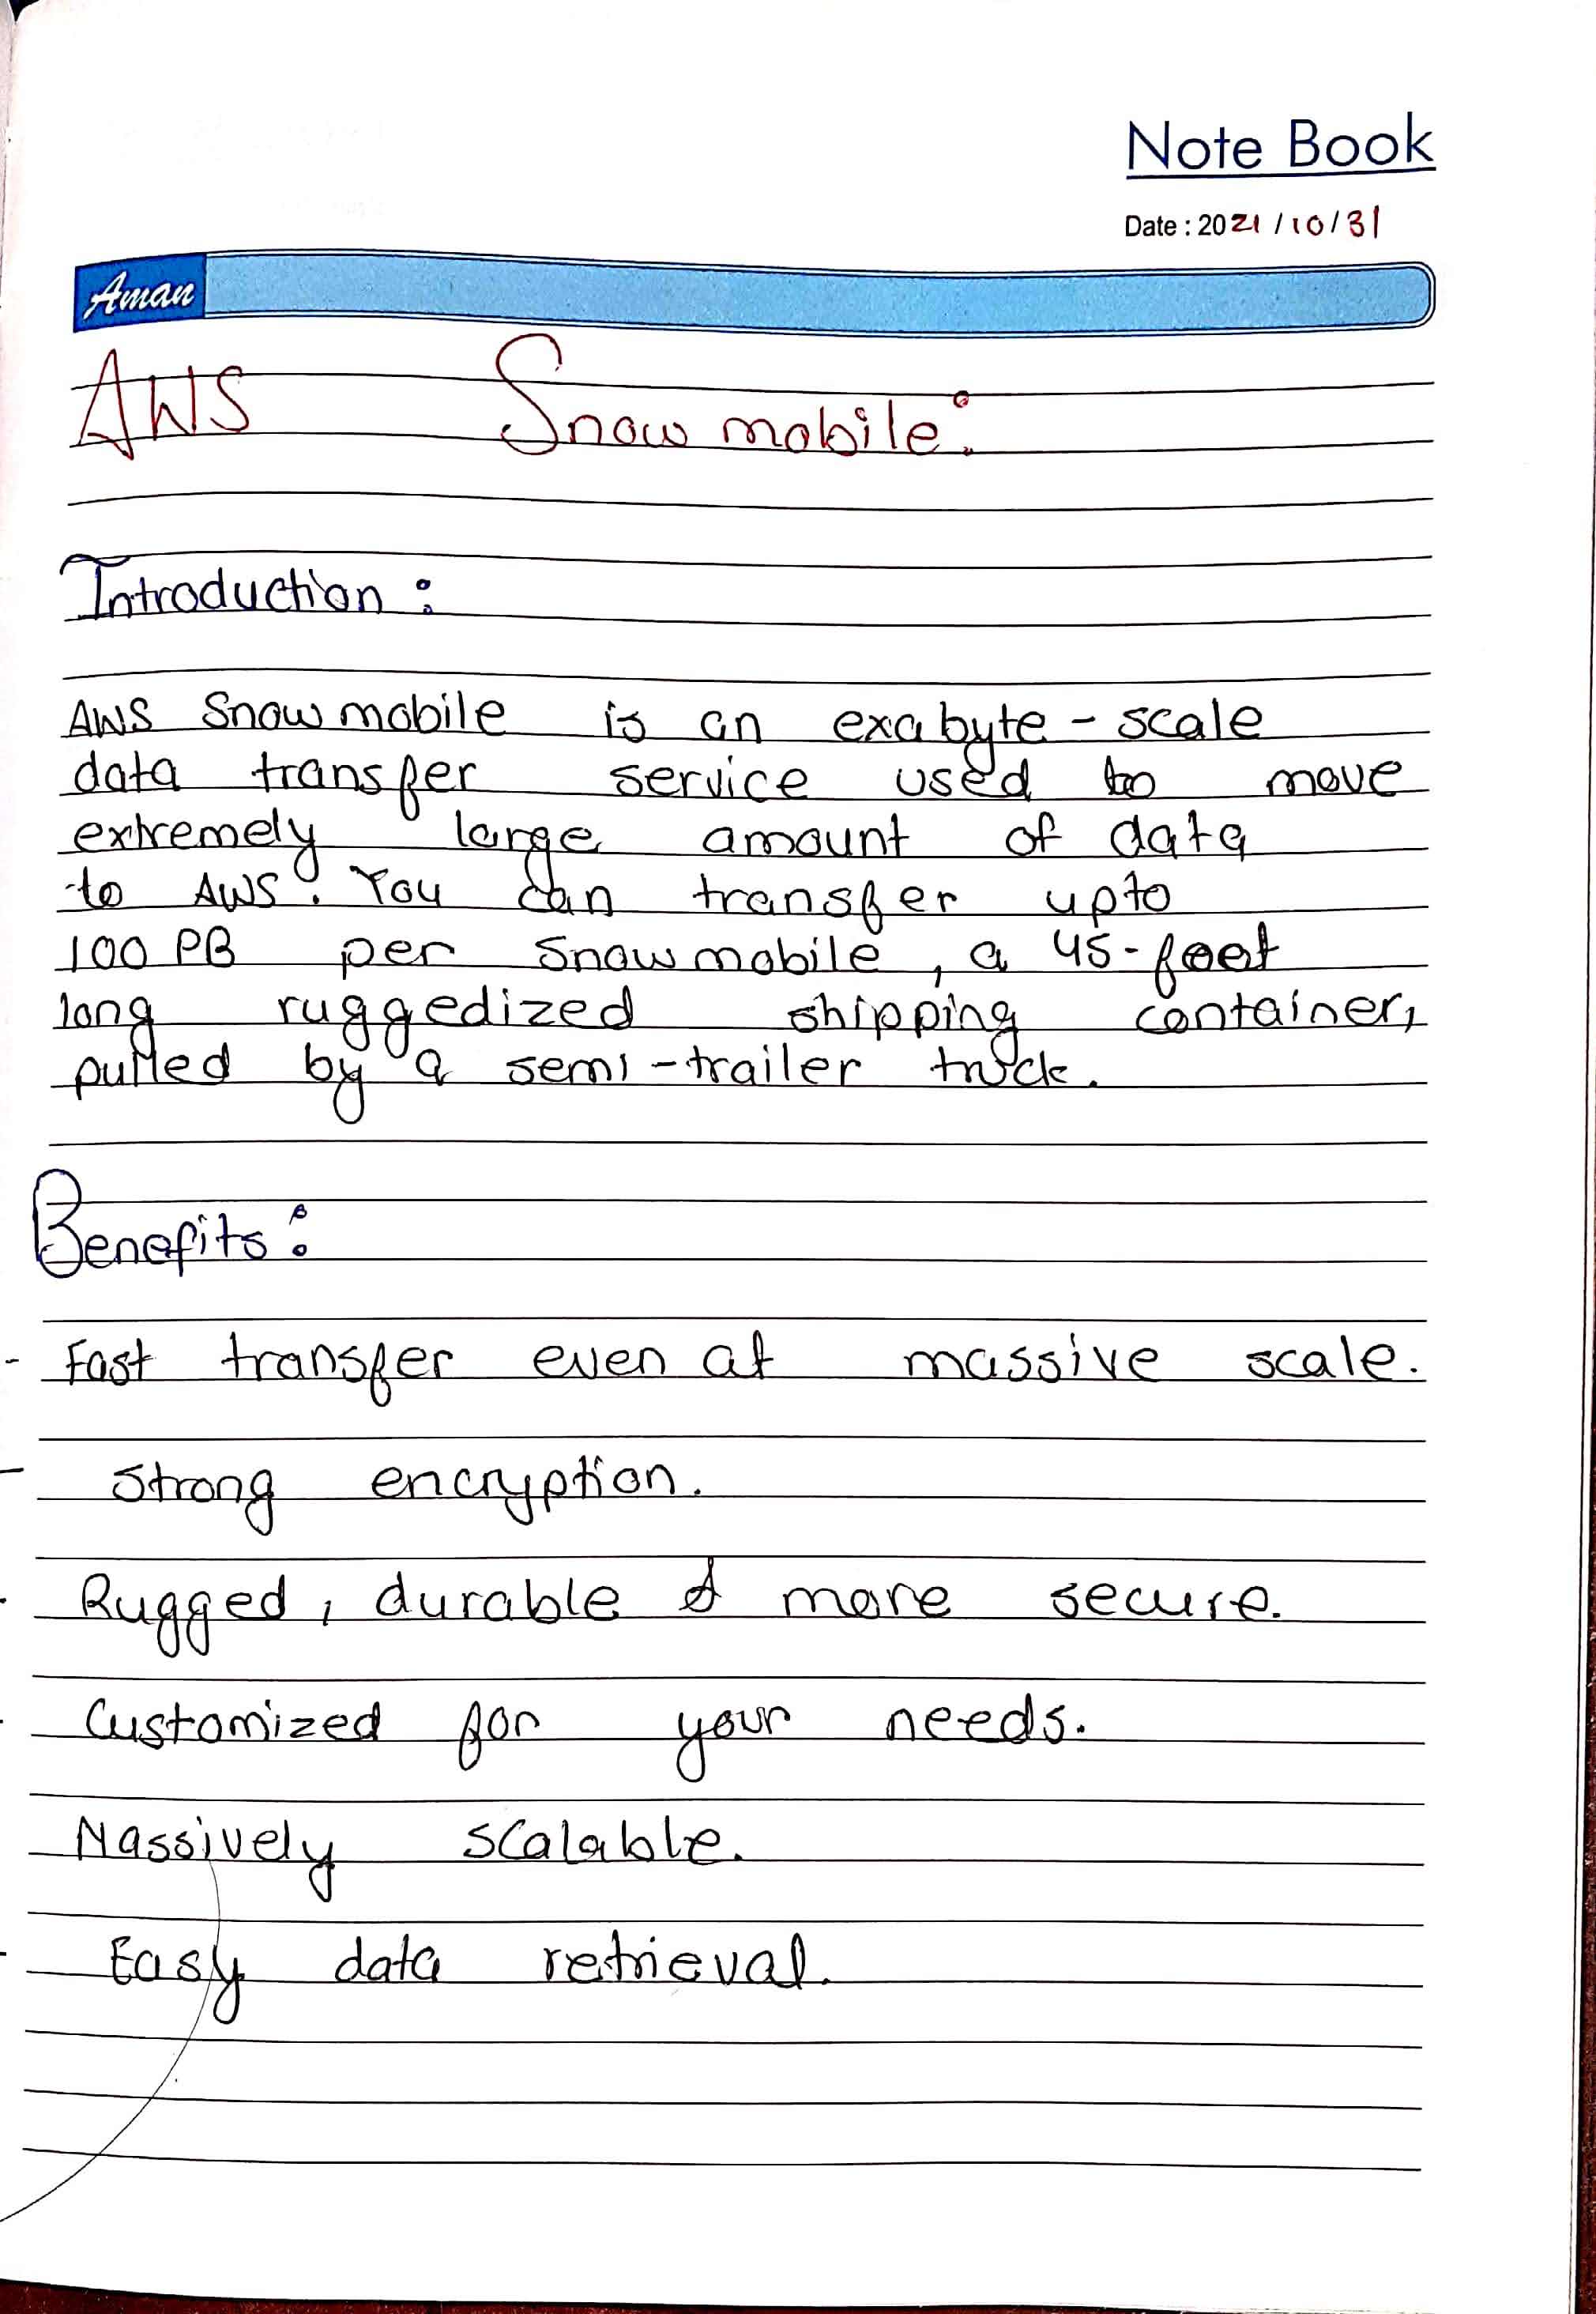 Note Book
Date : 2021 / 10 / 31
Aman
AWS Snowmobile:
Introduction :
AWS Snowmobile is an exabyte - scale
data transfer service used to move
extremely large amount of data
to AWS. You can transfer upto
100 PB per snowmobile, a 45-foot
long ruggedized shipping container,
pulled by a semi-trailer truck.
Benefits :
- Fast transfer even at massive scale.
- Strong encryption.
- Rugged, durable & more secure.
- Customized for your needs.
Massively scalable.
- Easy data retrieval.